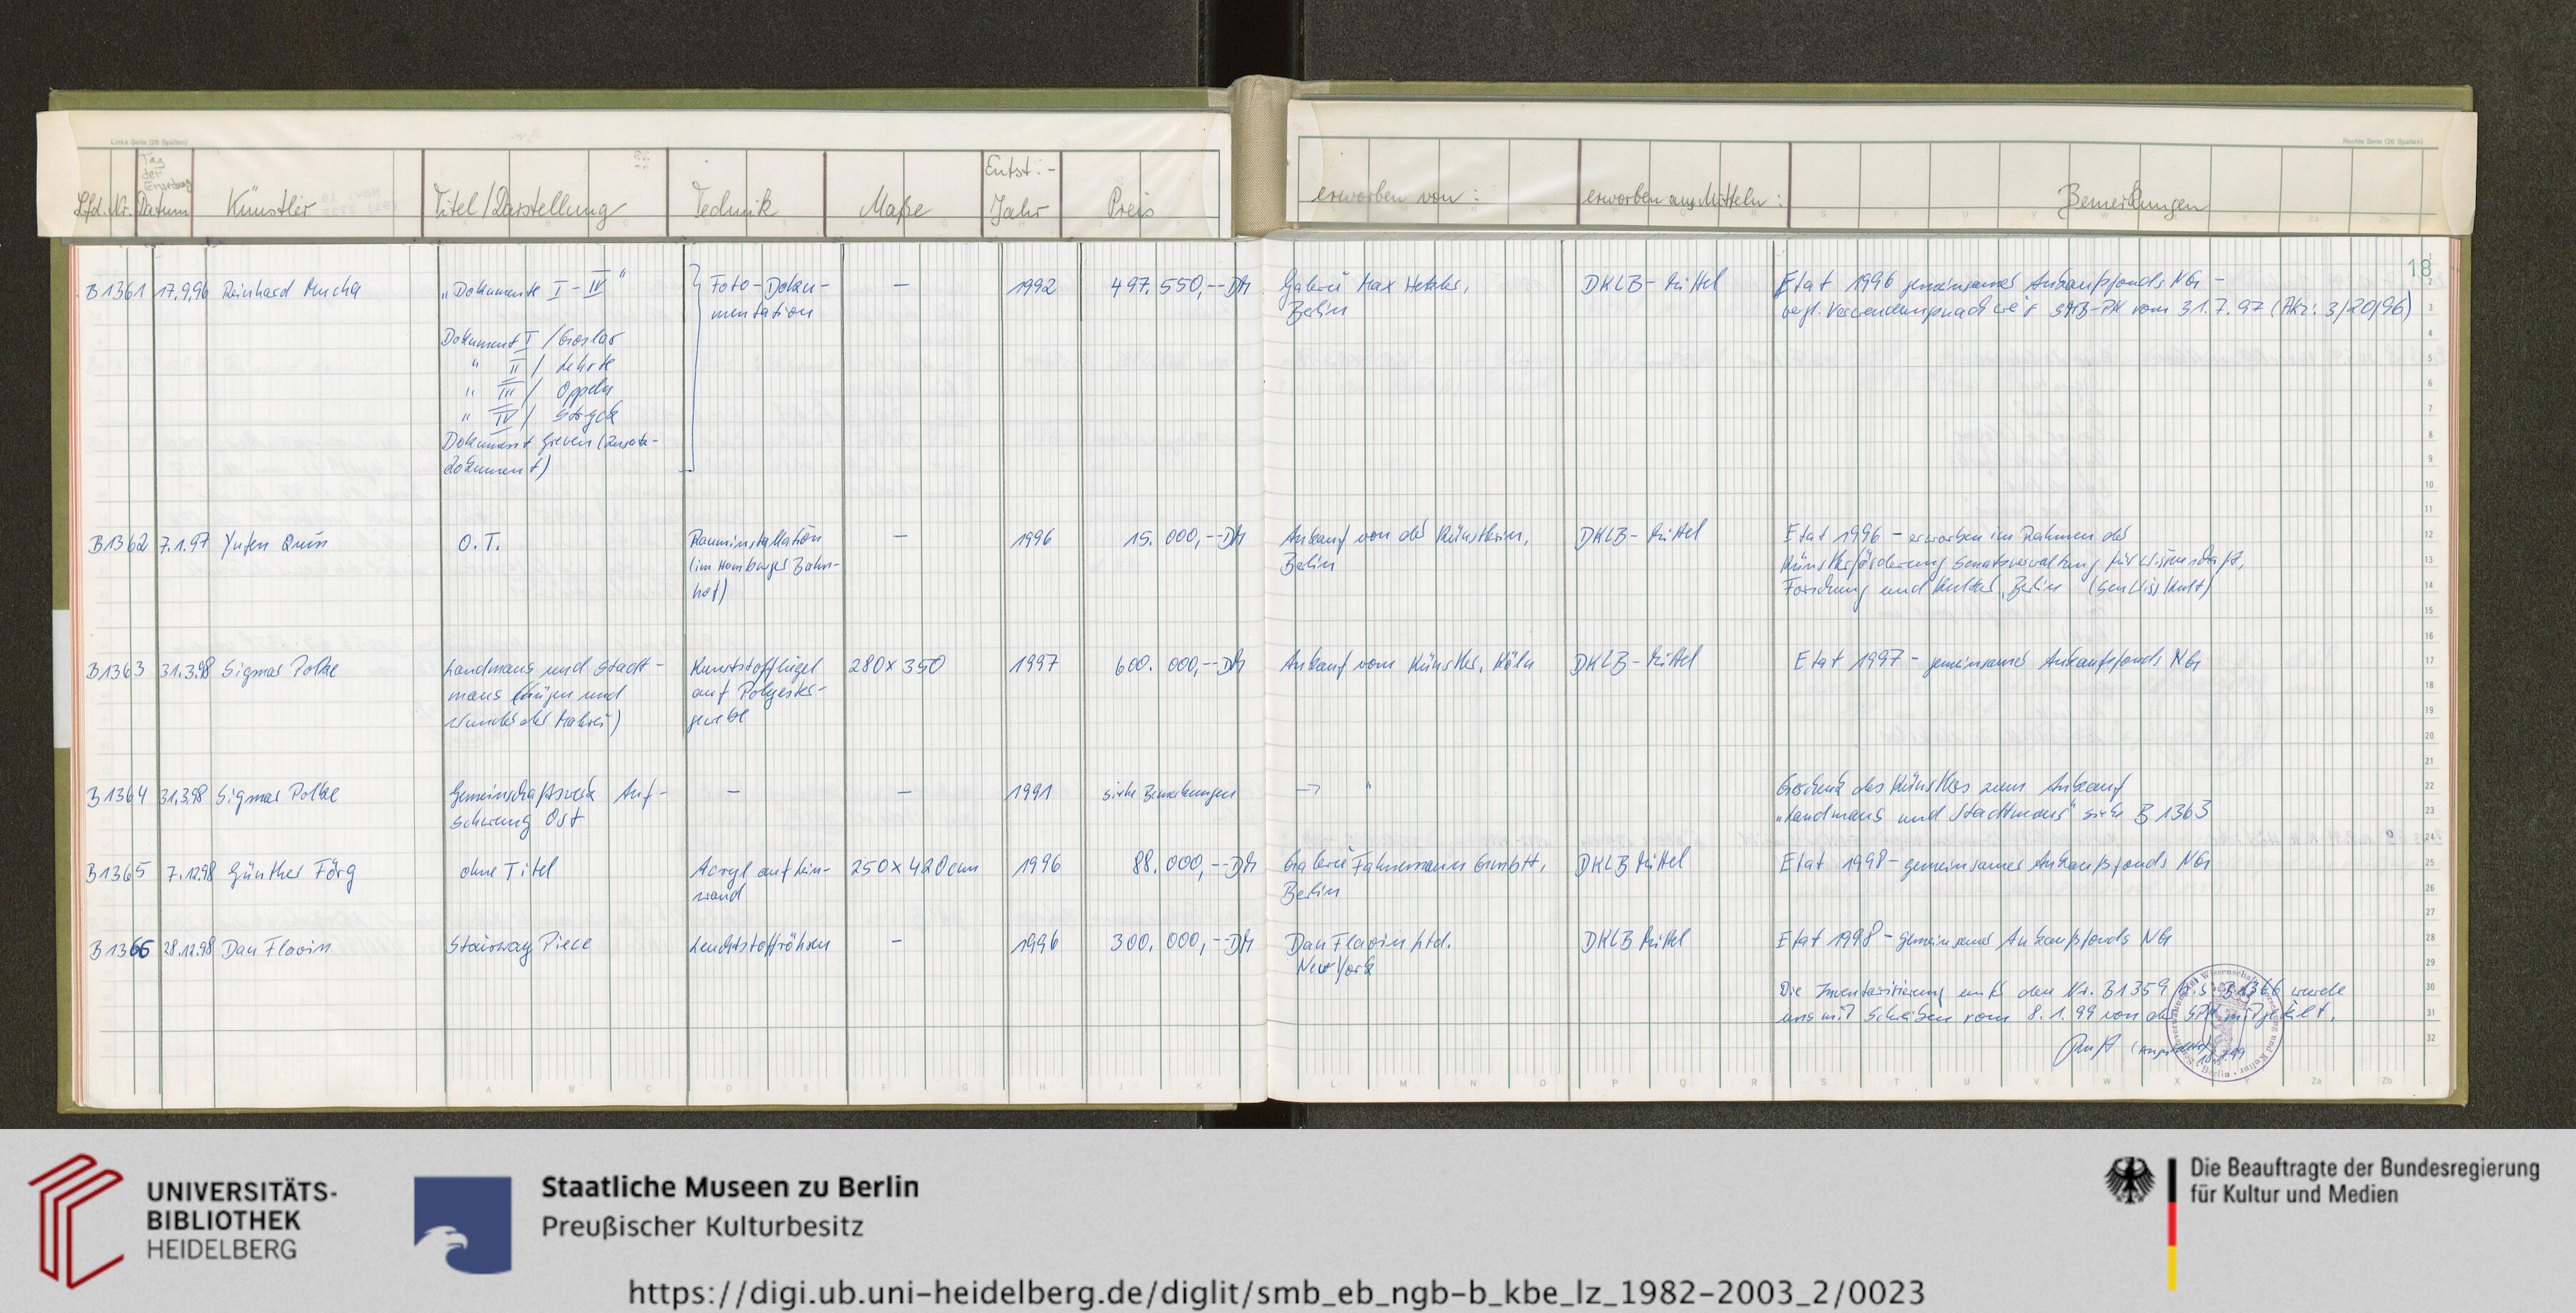 Linke Seite (26 Spalten)
Rechte Seite (26 Spalten)
Lfd. Nr. Tag der Erwerbung Datum Künstler Titel/Darstellung Technik Maße Entst.- Jahr Preis erworben von: erworben aus Mitteln: Bemerkungen
18
B1361 17.9.96 Reinhard Mucha „Dokumente I – IV" Foto-Doku- — 1992 497.550,-- DM Galerie Max Hetzler, DKLB-Mittel Etat 1996 gemeinsamer Ankaufsfonds NG –
mentation Berlin Verwendungsnachweis SMB-PK vom 31.7.97 (Akz: 3/20/96)
Dokument I / Goslar
" II / Lehrte
" III / Oppeln
" IV / Stryck
Dokument Greven (Zusatz-
dokument)
B1362 7.1.97 Yufen Quin O.T. Rauminstallation — 1996 15.000,-- DM Ankauf von der Künstlerin, DKLB-Mittel Etat 1996 – erworben im Rahmen der
(im Hamburger Bahn- Berlin Künstlerförderung Senatsverwaltung für Wissenschaft,
hof) Forschung und Kultur, Berlin (SenWissKult)
B1363 31.3.98 Sigmar Polke Landmaus und Stadt- Kunststoffsiegel 280 x 350 1997 600.000,-- DM Ankauf vom Künstler, Köln DKLB-Mittel Etat 1997 – gemeinsamer Ankaufsfonds NG
maus (Lügen und auf Polyester-
Wunder der Malerei) gewebe
B1364 31.3.98 Sigmar Polke Gemeinschaftswerk Auf- — — 1991 siehe Bemerkungen — " Geschenk des Künstlers zum Ankauf
schwung Ost „Landmaus und Stadtmaus" siehe B 1363
B1365 7.12.98 Günther Förg ohne Titel Acryl auf Lein- 250 x 420 cm 1996 88.000,-- DM Galerie Fahnemann GmbH, DKLB Mittel Etat 1998 – gemeinsamer Ankaufsfonds NG
wand Berlin
B1366 28.12.98 Dan Flavin Stairway Piece Leuchtstoffröhren — 1996 300.000,-- DM Dan Flavin Ltd. DKLB Mittel Etat 1998 – gemeinsamer Ankaufsfonds NG
New York
Die Inventarisierung unter den Nr. B1359 bis B1366 wurde
uns mit Schreiben vom 8.1.99 von der SPK mitgeteilt.
UNIVERSITÄTS-
BIBLIOTHEK
HEIDELBERG
Staatliche Museen zu Berlin
Preußischer Kulturbesitz
Die Beauftragte der Bundesregierung
für Kultur und Medien
https://digi.ub.uni-heidelberg.de/diglit/smb_eb_ngb-b_kbe_lz_1982-2003_2/0023